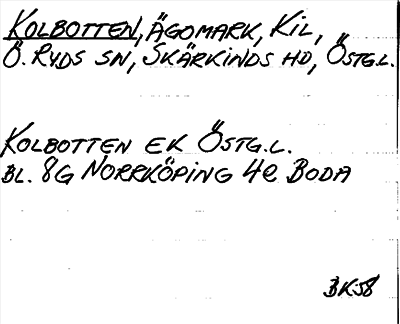 KOLBOTTEN, ÄGOMARK, KIL,
Ö. RYDS SN, SKÄRKINDS HD, ÖSTG.L.
KOLBOTTEN EK ÖSTG.L.
BL. 8G NORRKÖPING 4e BODA
BK-58